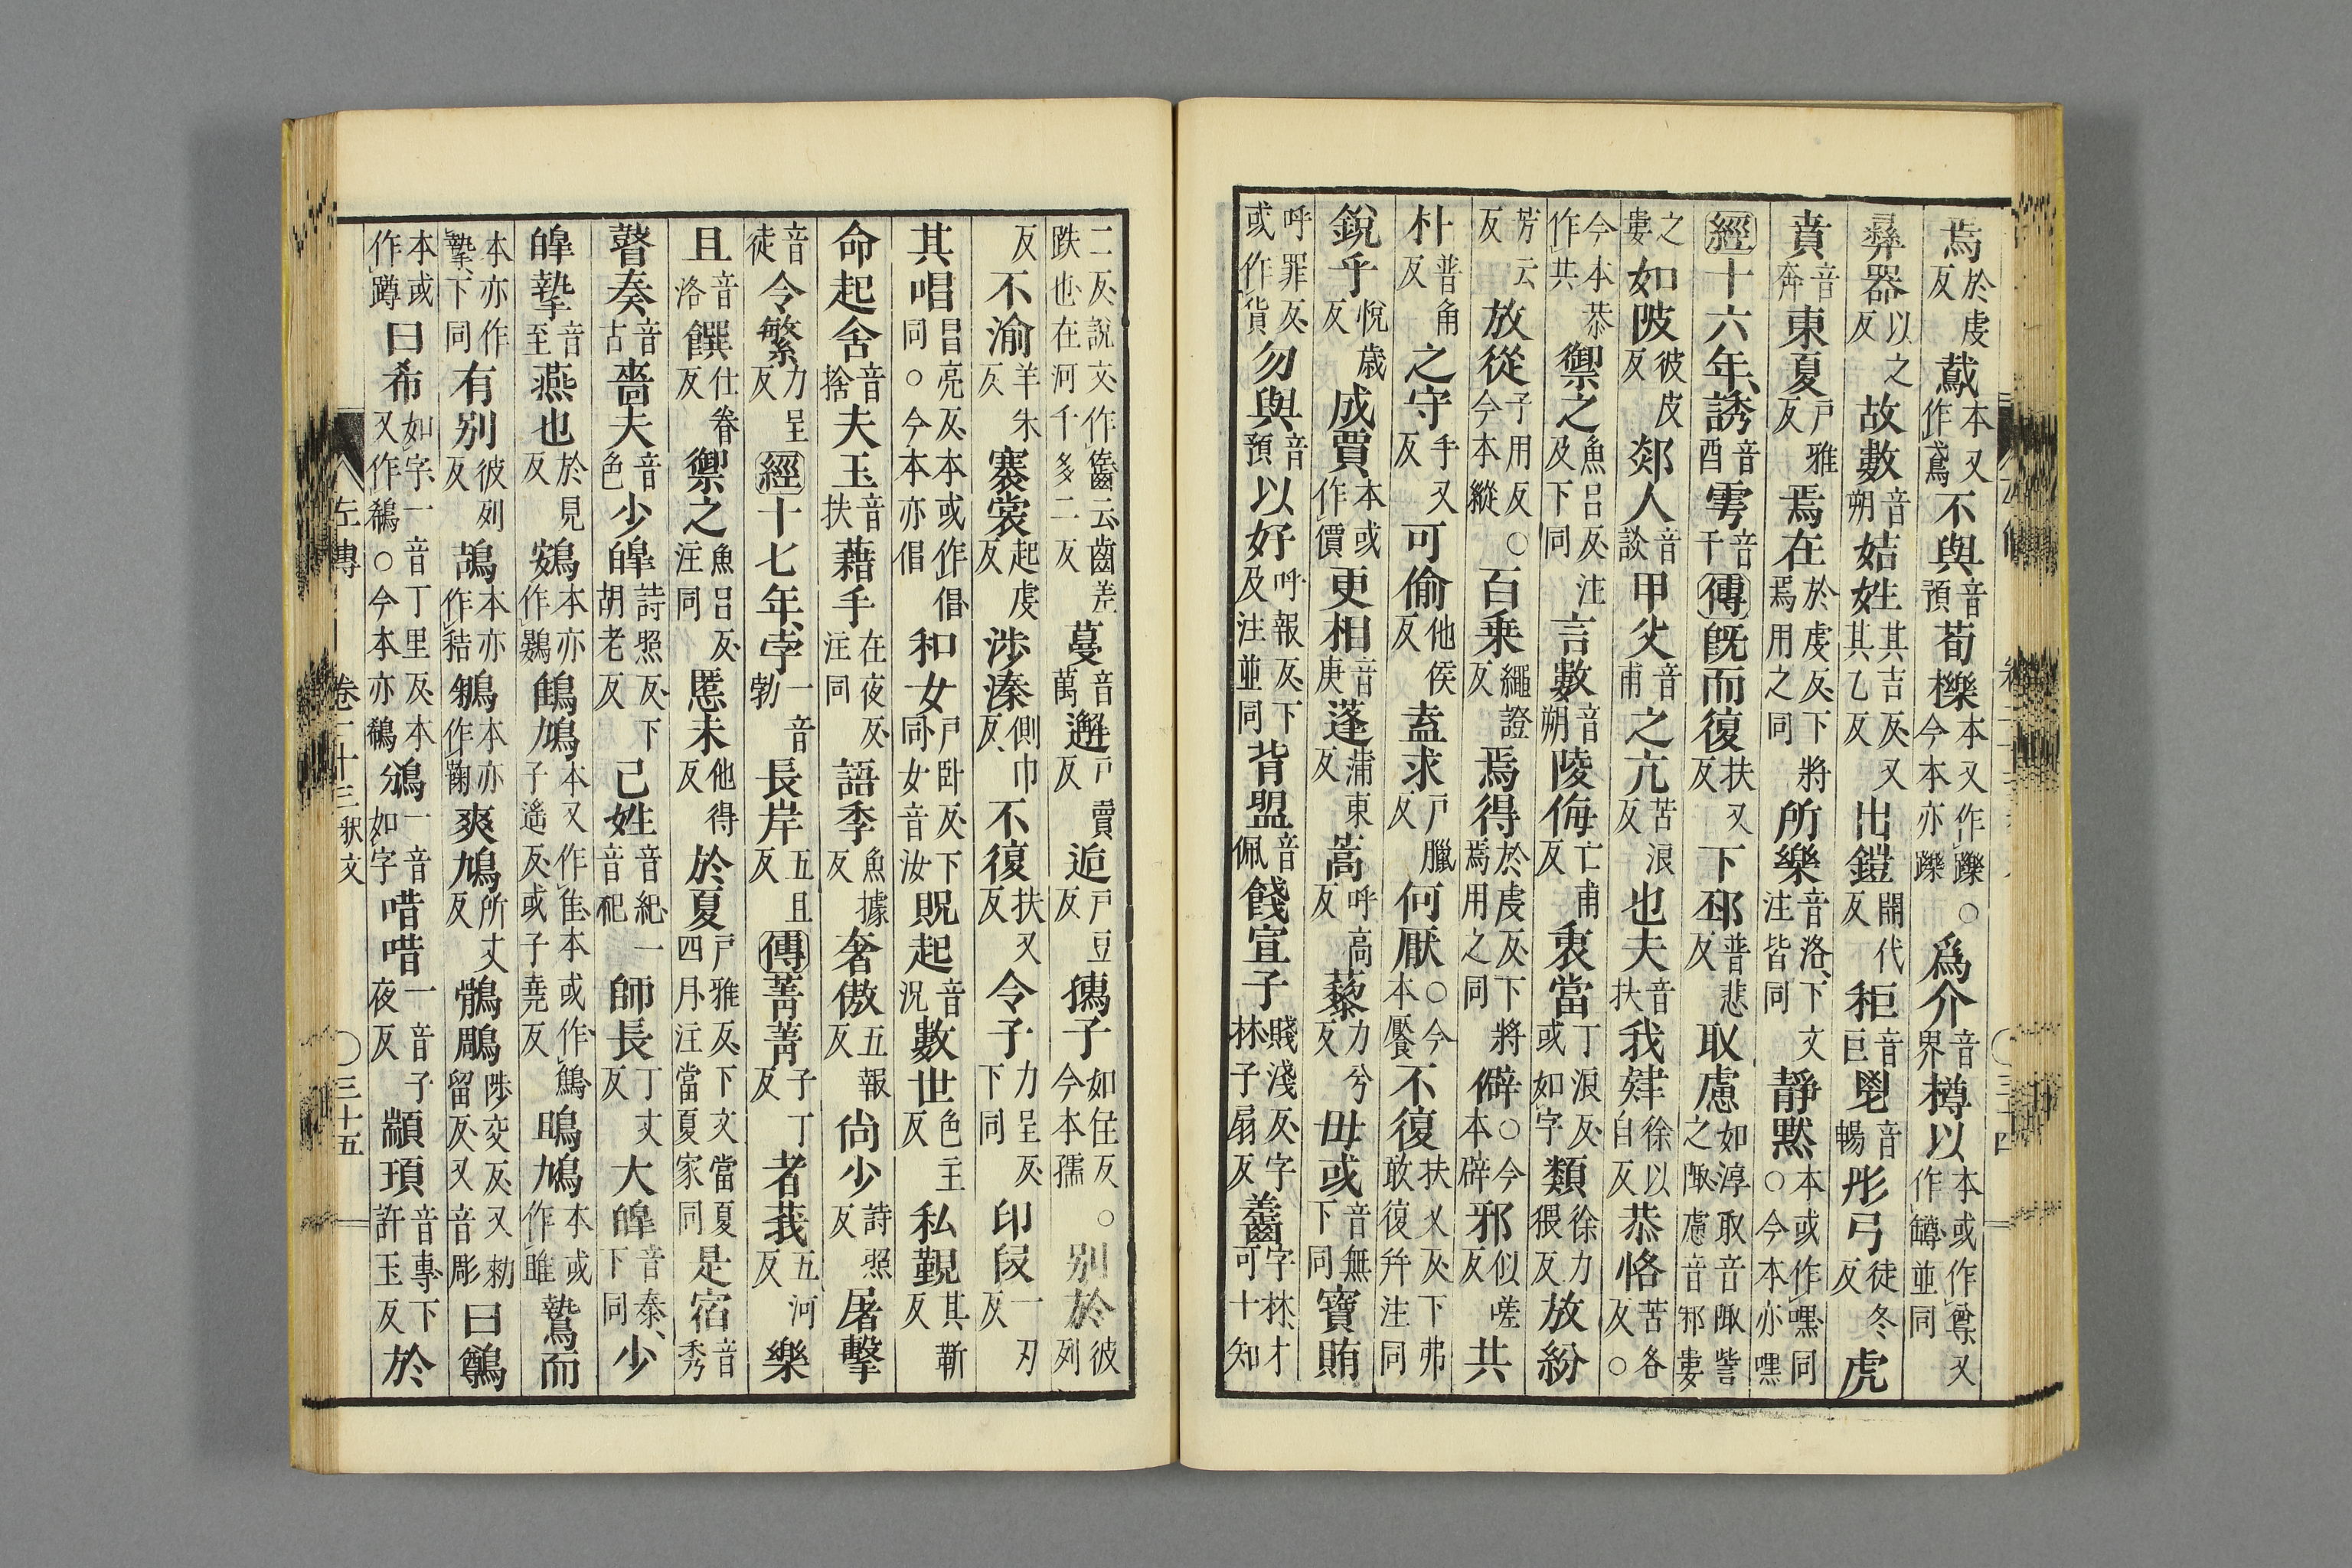 焉於虔反鷰本又作鳶不與音預荀櫟本又作躒○今本亦躒爲介音界樽以本或作尊又作罇並同
彛器以之反故數音朔姞姓其吉反又其乙反出鎧開代反秬音巨鬯音暢彤弓徒冬反虎
賁音奔東夏戸雅反焉在於虔反下將焉用之同所樂音洛下文注皆同靜黙本或作嘿同○今本亦嘿
經十六年誘音酉雩音于傳旣而復扶又反下邳普悲反取慮如淳取音陬訾之陬慮音邾婁
之婁如陂彼皮反郯人音談甲父音甫之亢苦浪反也夫音扶我肄徐以自反恭恪苦各反○
今本作共恭禦之魚呂反及下同注言數音朔陵侮亡甫反衷當丁浪反或如字類徐力猥反放紛
芳云反放從子用反○今本縱百乗繩證反焉得於虔反下將焉用之同僻○今本辟邪似嗟反共
朴普角反之守手又反可偷他侯反盍求戸臘反何厭○今本饜不復扶又反下弗敢復幷注同
銳乎悅歲反成賈本或作價更相音庚蓬蒲東反蒿呼高反藜力兮反毋或音無下同寶賄
呼罪反或作貨勿與音預以好呼報反下及注並同背盟音佩餞宣子賤淺反字林子扇反羞齒字林才可十知
二反說文作齹云齒差跌也在河千多二反蔓音萬邂戸賣反逅戸豆反孺子如住反○今本孺別於彼列
反不渝羊朱反褰裳起虔反涉溱側巾反不復扶又反令子力呈反下同印段一刃反
其唱昌亮反本或作倡同○今本亦倡和女戸卧反下同女音汝貺起音況數世色主反私覲其靳反
命起舍音捨夫玉音扶藉手在夜反注同語季魚據反奢傲五報反尙少詩照反屠擊
音徒令繁力呈反經十七年孛一音勃長岸五旦反傳菁菁子丁反者莪五河反樂
且音洛饌仕眷反禦之魚呂反注同慝未他得反於夏戸雅反下文當夏四月注當夏家同是宿音秀
瞽奏音古嗇夫音色少皥詩照反下胡老反己姓音紀一音祀師長丁丈反大皥音泰下同少
皥摯音至燕也於見反鴳本亦作鷃鵖鳩本又作隹本或作鵻子遙反或子堯反鴡鳩本或作雎鷙而
本亦作摯下同有別彼列反鴶本亦作秸鶵本亦作鞠爽鳩所丈反鶻鵰陟交反又勑留反又音彫曰鷷
本或作蹲曰希如字一音丁里反本又作鵗○今本亦鵗鳻一音如字唶唶一音子夜反顓頊音專下許玉反於
左傳 卷二十三釈文 三十五